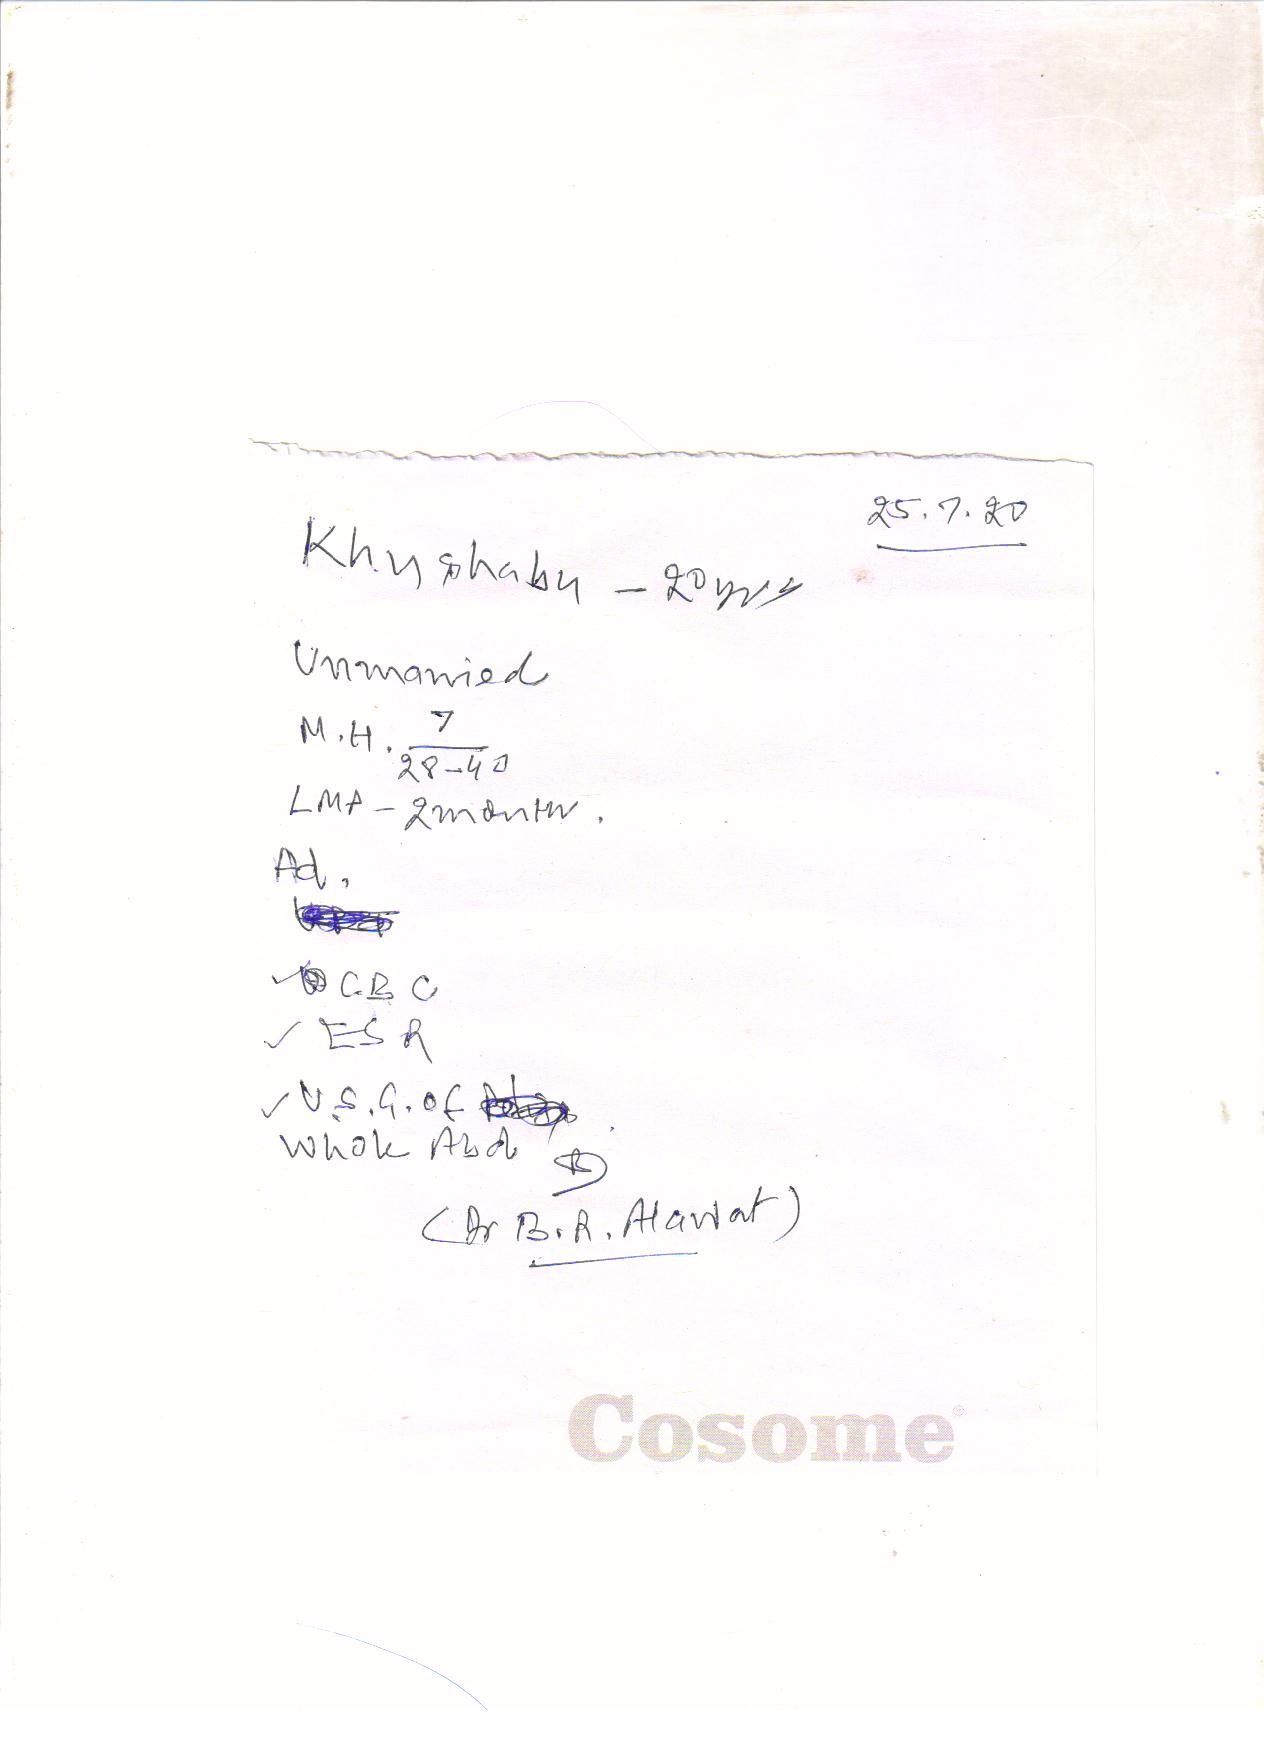 25.7.20
Khushabu - 20 yrs
Unmarried
M.H. 7/28-40
LMP - 2 months.
Ad,
✓ CBC
✓ ESR
✓ U.S.G. of
Whole Abd
(Dr B.R. Alawat)
Cosome